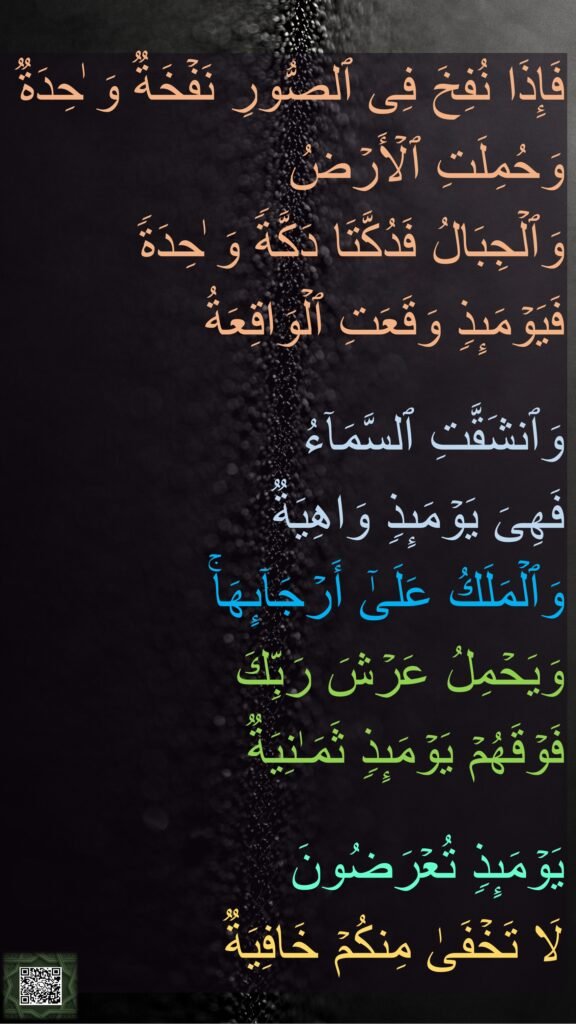 فَإِذَا نُفِخَ فِى ٱلصُّورِ نَفْخَةٌ وَٰحِدَةٌ
وَحُمِلَتِ ٱلْأَرْضُ
وَٱلْجِبَالُ فَدُكَّتَا دَكَّةً وَٰحِدَةً
فَيَوْمَئِذٍ وَقَعَتِ ٱلْوَاقِعَةُ
وَٱنشَقَّتِ ٱلسَّمَآءُ
فَهِىَ يَوْمَئِذٍ وَاهِيَةٌ
وَٱلْمَلَكُ عَلَىٰٓ أَرْجَآئِهَا ۚ
وَيَحْمِلُ عَرْشَ رَبِّكَ
فَوْقَهُمْ يَوْمَئِذٍ ثَمَـٰنِيَةٌ
يَوْمَئِذٍ تُعْرَضُونَ
لَا تَخْفَىٰ مِنكُمْ خَافِيَةٌ